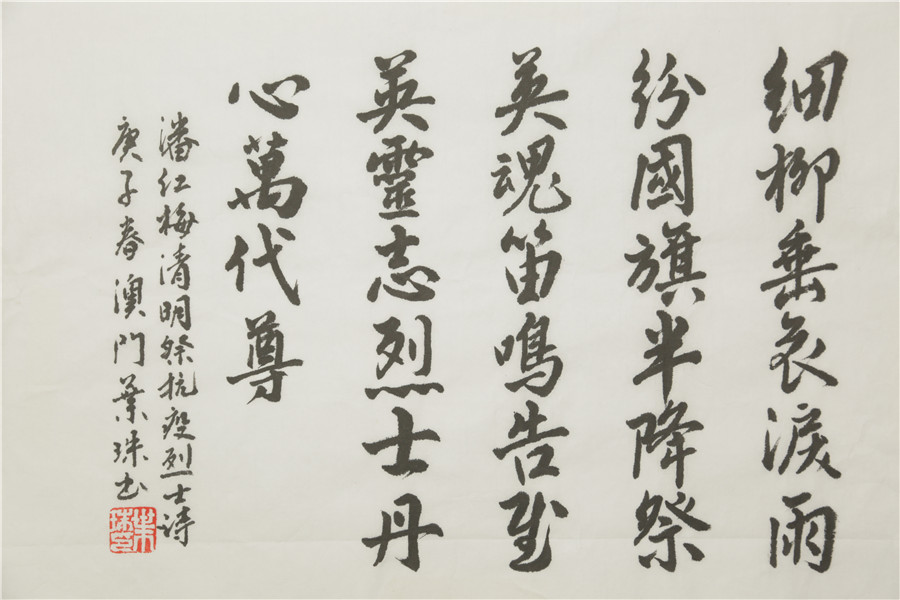 細柳垂哀淚雨
紛國旗半降祭
英魂笛鳴告慰
英靈志烈士丹
心萬代尊
潘紅梅清明祭抗疫烈士詩
庚子春澳門葉珠书
葉珠印